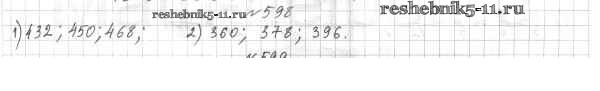 reshebnik5-11.ru №598 reshebnik5-11.ru
1) 432; 450; 468; 2) 360; 378; 396.